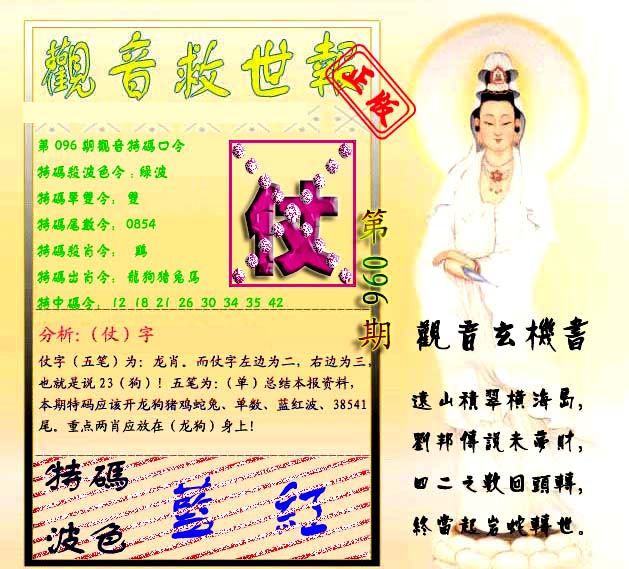 觀音救世報
正版
第096期觀音特碼口令
特碼殺波色令：綠波
特碼單雙令： 雙
特碼尾數令： 0854
特碼殺肖令： 鷄
特碼出肖令： 龍狗猪兔馬
特中碼令： 12 18 21 26 30 34 35 42
仗
第096期
分析:（仗）字
仗字（五笔）为：龙肖。而仗字左边为二，右边为三，
也就是说23（狗）！五笔为:（单）总结本报资料，
本期特码应该开龙狗猪鸡蛇兔、单数、蓝红波、38541
尾。重点两肖应放在（龙狗）身上！
特碼
波色
藍 紅
觀音玄機書
遠山積翠橫海島，
劉邦傳説未夢財，
四二之數回頭轉，
終當起岩蛇轉世。